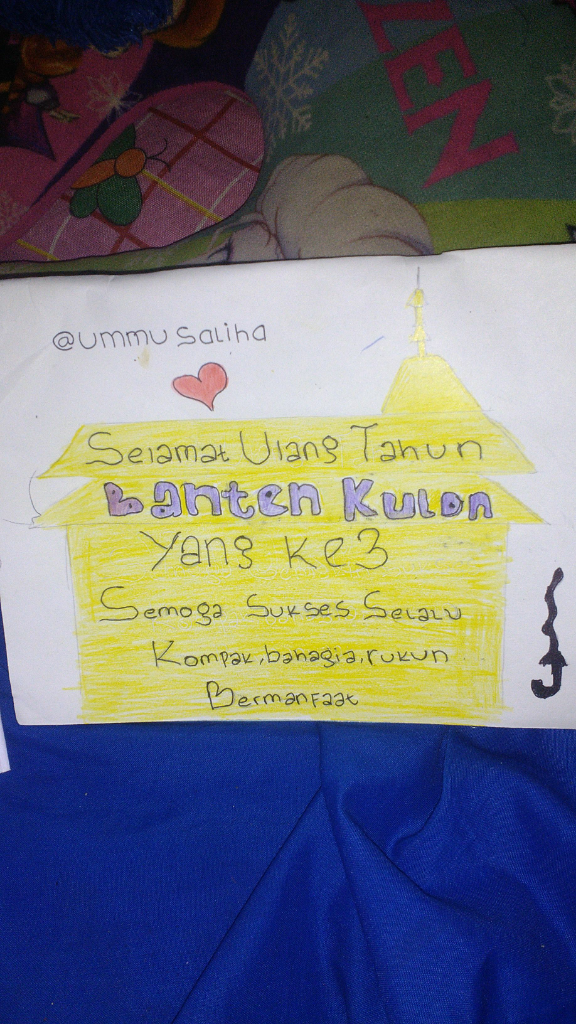 ZEN
@ummu saliha
Selamat Ulang Tahun
Banten Kulon
Yang ke3
Semoga Sukses Selalu
Kompak, bahagia, rukun
Bermanfaat